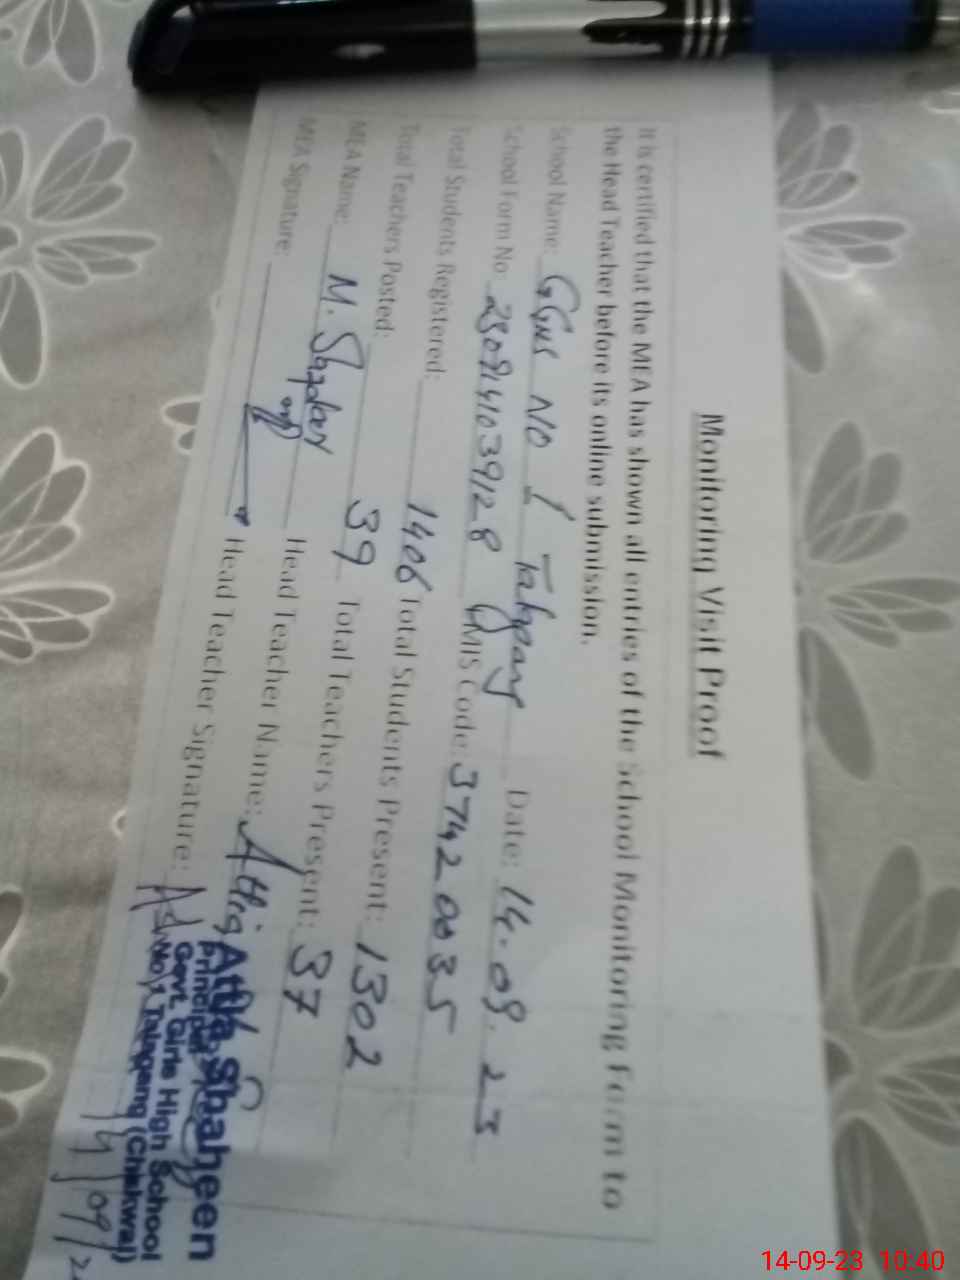 Monitoring Visit Proof
It is certified that the MEA has shown all entries of the School Monitoring Form to
the Head Teacher before its online submission.
School Name: GGHS NO 1 Talagang Date: 14.09.23
School Form No: EMIS Code: 37420035
Total Students Registered: 1406 Total Students Present: 1302
Total Teachers Posted: 39 Total Teachers Present: 37
MEA Name: M. Head Teacher Name: Attia
MEA Signature: Head Teacher Signature:
Attia Shaheen
Principal
Govt. Girls High School
No 1 Talagang (Chakwal)
14/09/2
14-09-23 10:40